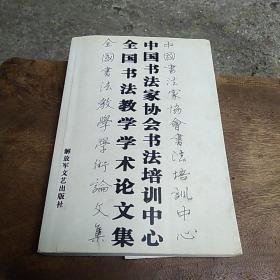 中國書法家協會書法培訓中心
中国书法家协会书法培训中心
全国书法教学学术论文集
全國書法教學學術論文集
解放军文艺出版社